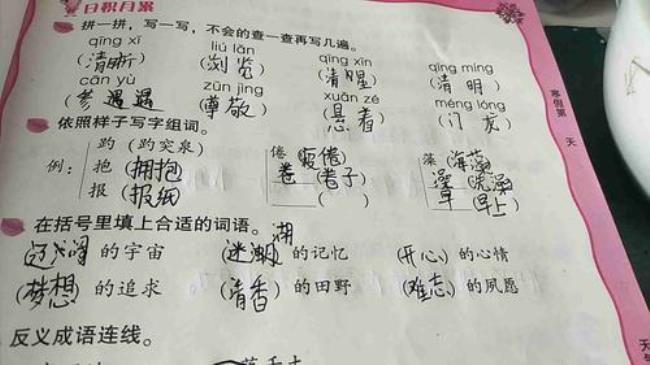 日积月累
拼一拼，写一写，不会的查一查再写几遍。
qīng xī liú lǎn qīng xǐn qīng míng
(清晰) (浏览) (清醒) (清明)
cān yù zūn jìng xuān zé méng lóng
(参遇遇) (尊敬) (悬着) (门龙)
寒假第 天
依照样子写字组词。
趵 (趵突泉) 倦 (疲倦) 藻 (海藻)
例： 抱 (拥抱) 卷 (卷子) 澡 (洗澡)
报 (报纸) ( ) 草 (早上)
在括号里填上合适的词语。
湖
(辽阔) 的宇宙 (迷湖) 的记忆 (开心) 的心情
(梦想) 的追求 (清香) 的田野 (难忘) 的夙愿
反义成语连线。